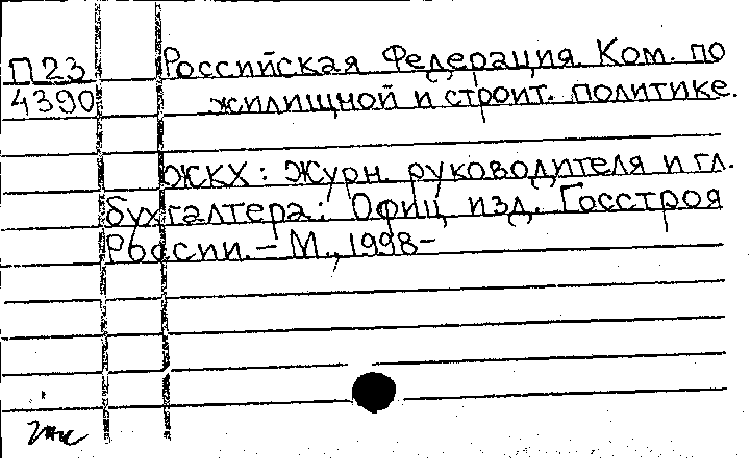 П23 Российская Федерация. Ком. по
4390 жилищной и строит. политике.
ЖКХ: Журн. руководителя и гл.
бухгалтера: Офиц. изд. Госстроя
России. – М., 1998–